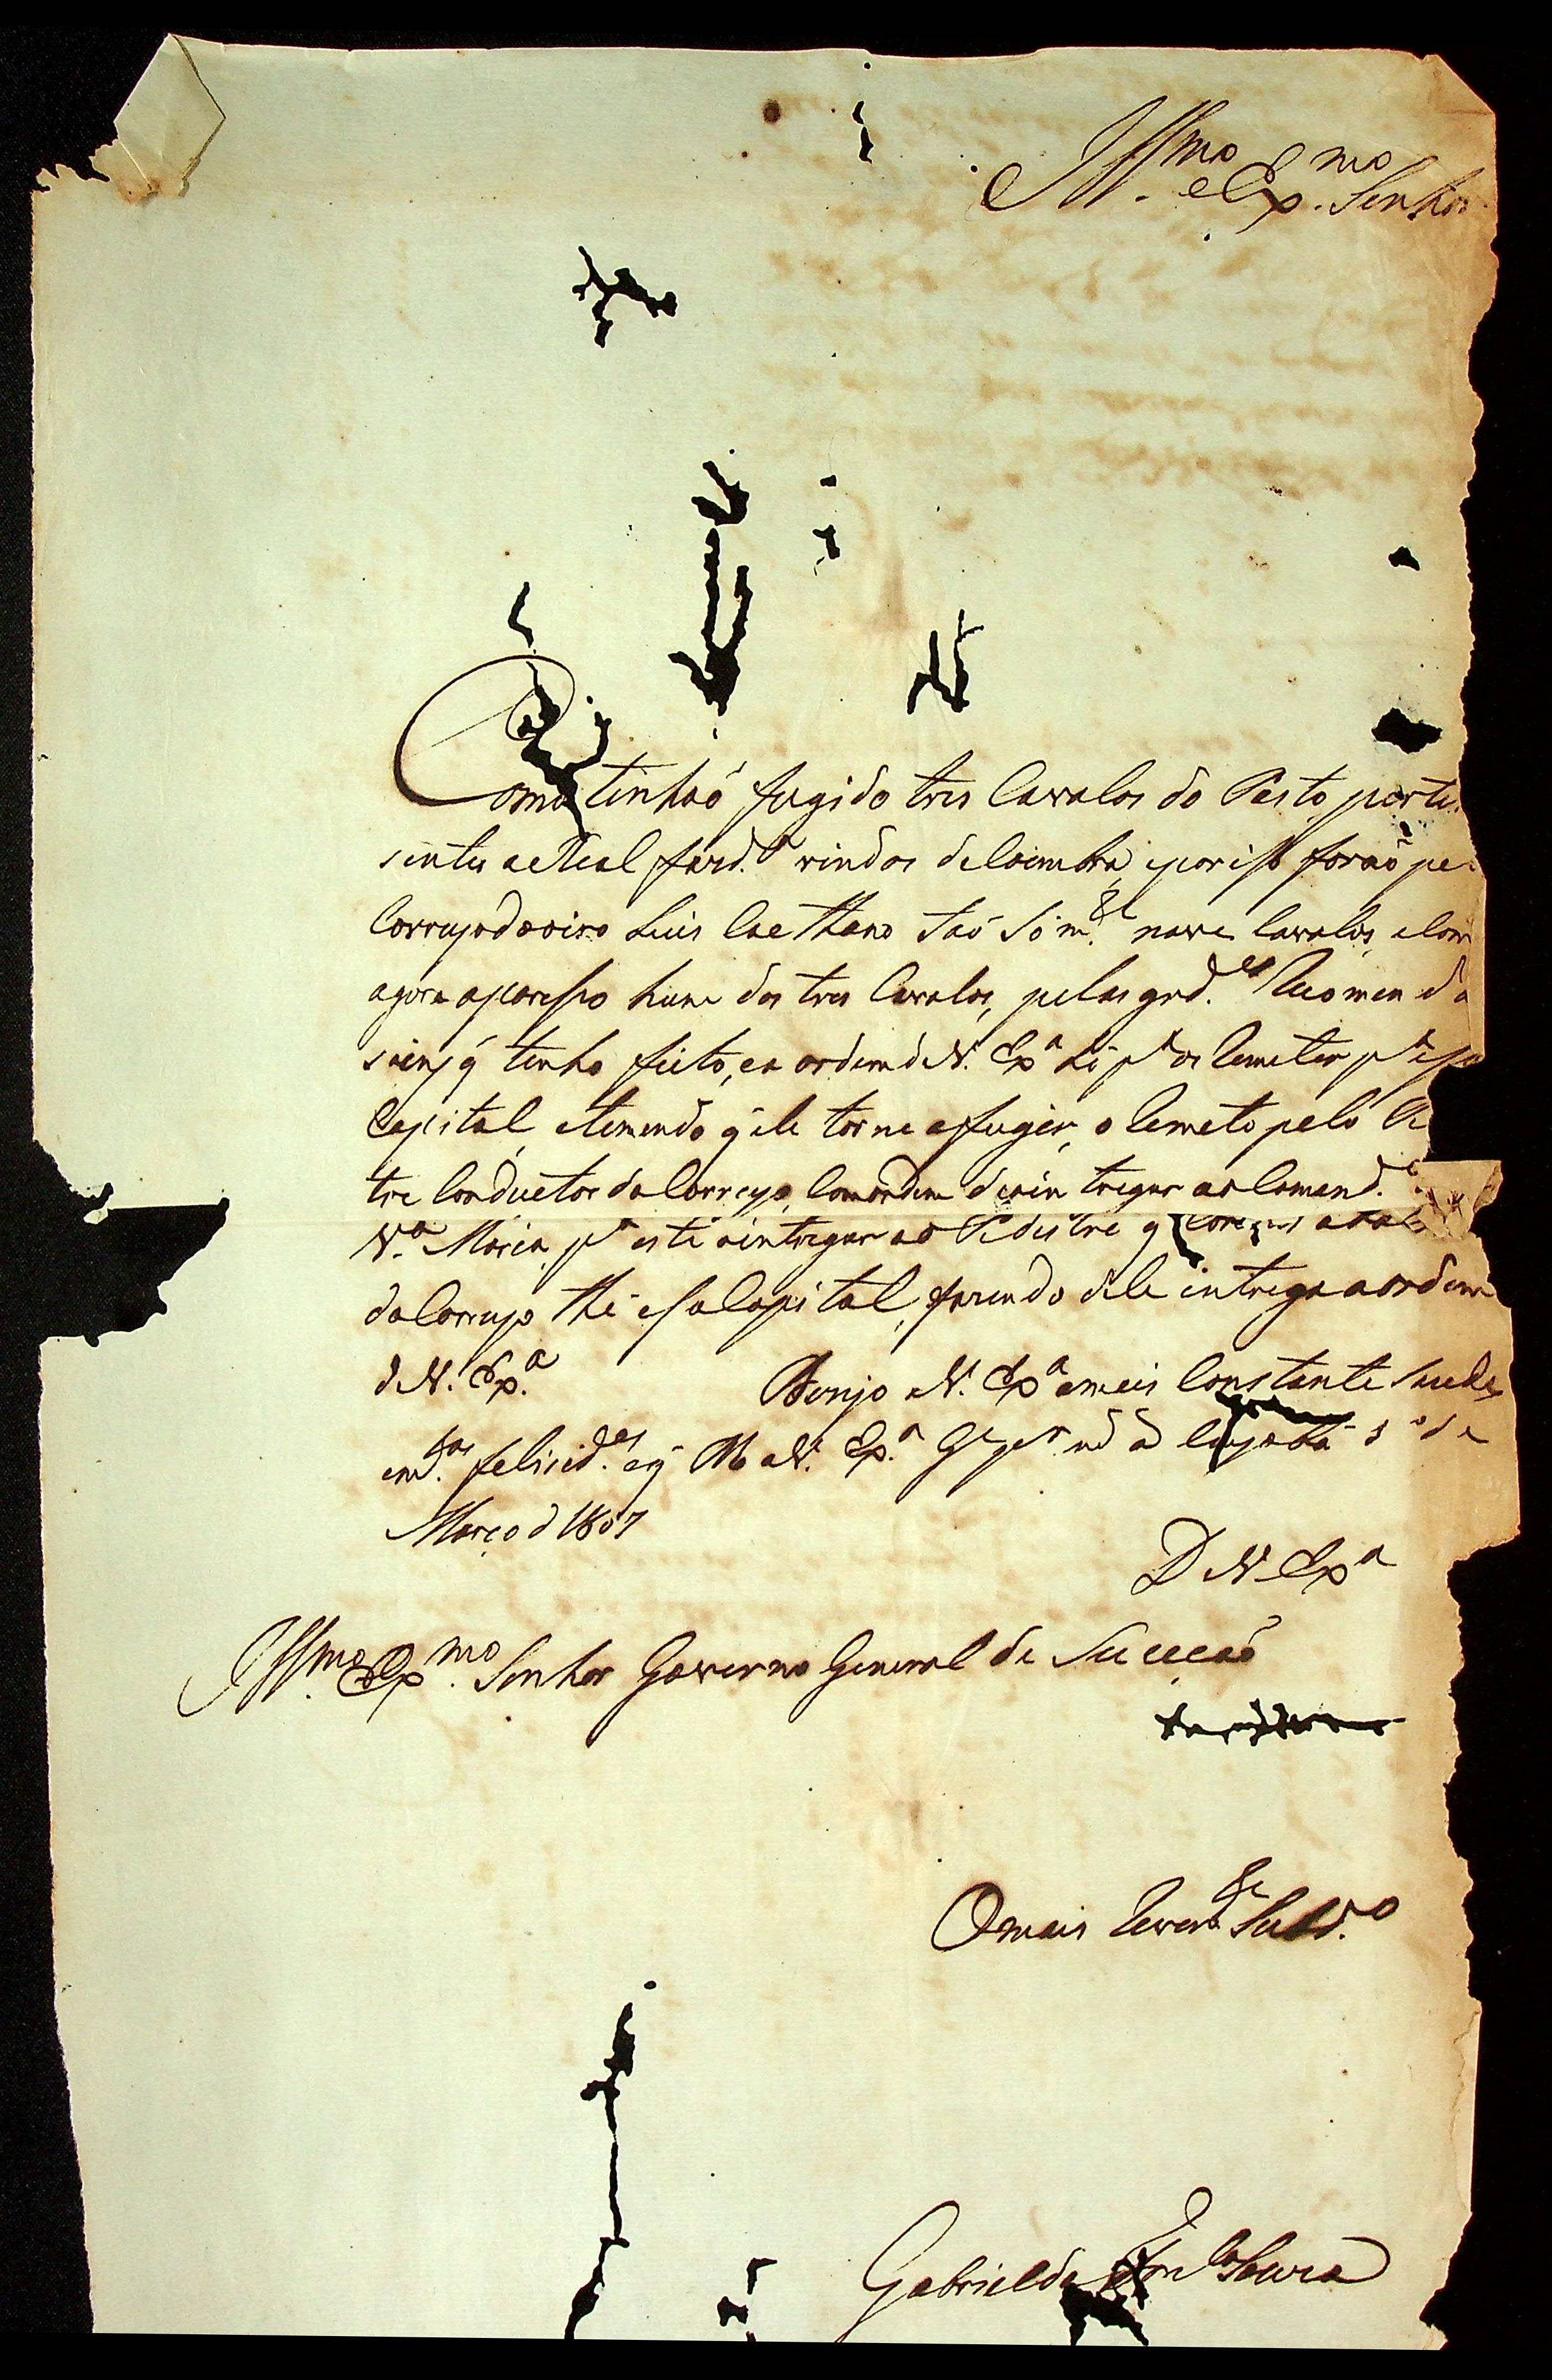 Illmo. e Exmo. Senhor
Como tinhaõ fugido tres Cavalos do Pasto perte
sentes a Real fazd.ª vindos de Coimbra, e por isso foraõ pe
Luis Caethano taõ Som.te nove Cavalos, e Com
agora aparesso hum dos tres Cavalos, pelas grd.es Recomenda
soins q̃ tenho feito, e a ordem de V. Exª hé pª os Remeter pª essa
Capital, e temendo q̃ ele torne a fugir, o Remeto pelo
tre Conductor da Correyo, Com ordem de o in tregar ao Comand.e
V.ª Maria, pª este o intregar ao Pedestre q̃
da Correyo thé essa Capital, fazendo dele intrega a ordem
de V. Exª. Dezejo a V. Exª a mais Constante saude
em d.as felicid.es e q̃ a V. Exª. Cuyabá 3 de
Março d 1807
D V Exª
Illmo. Exmo. Senhor Governo General de Suceçaõ
O mais Rever.te Subd.o
Gabriel da Souza